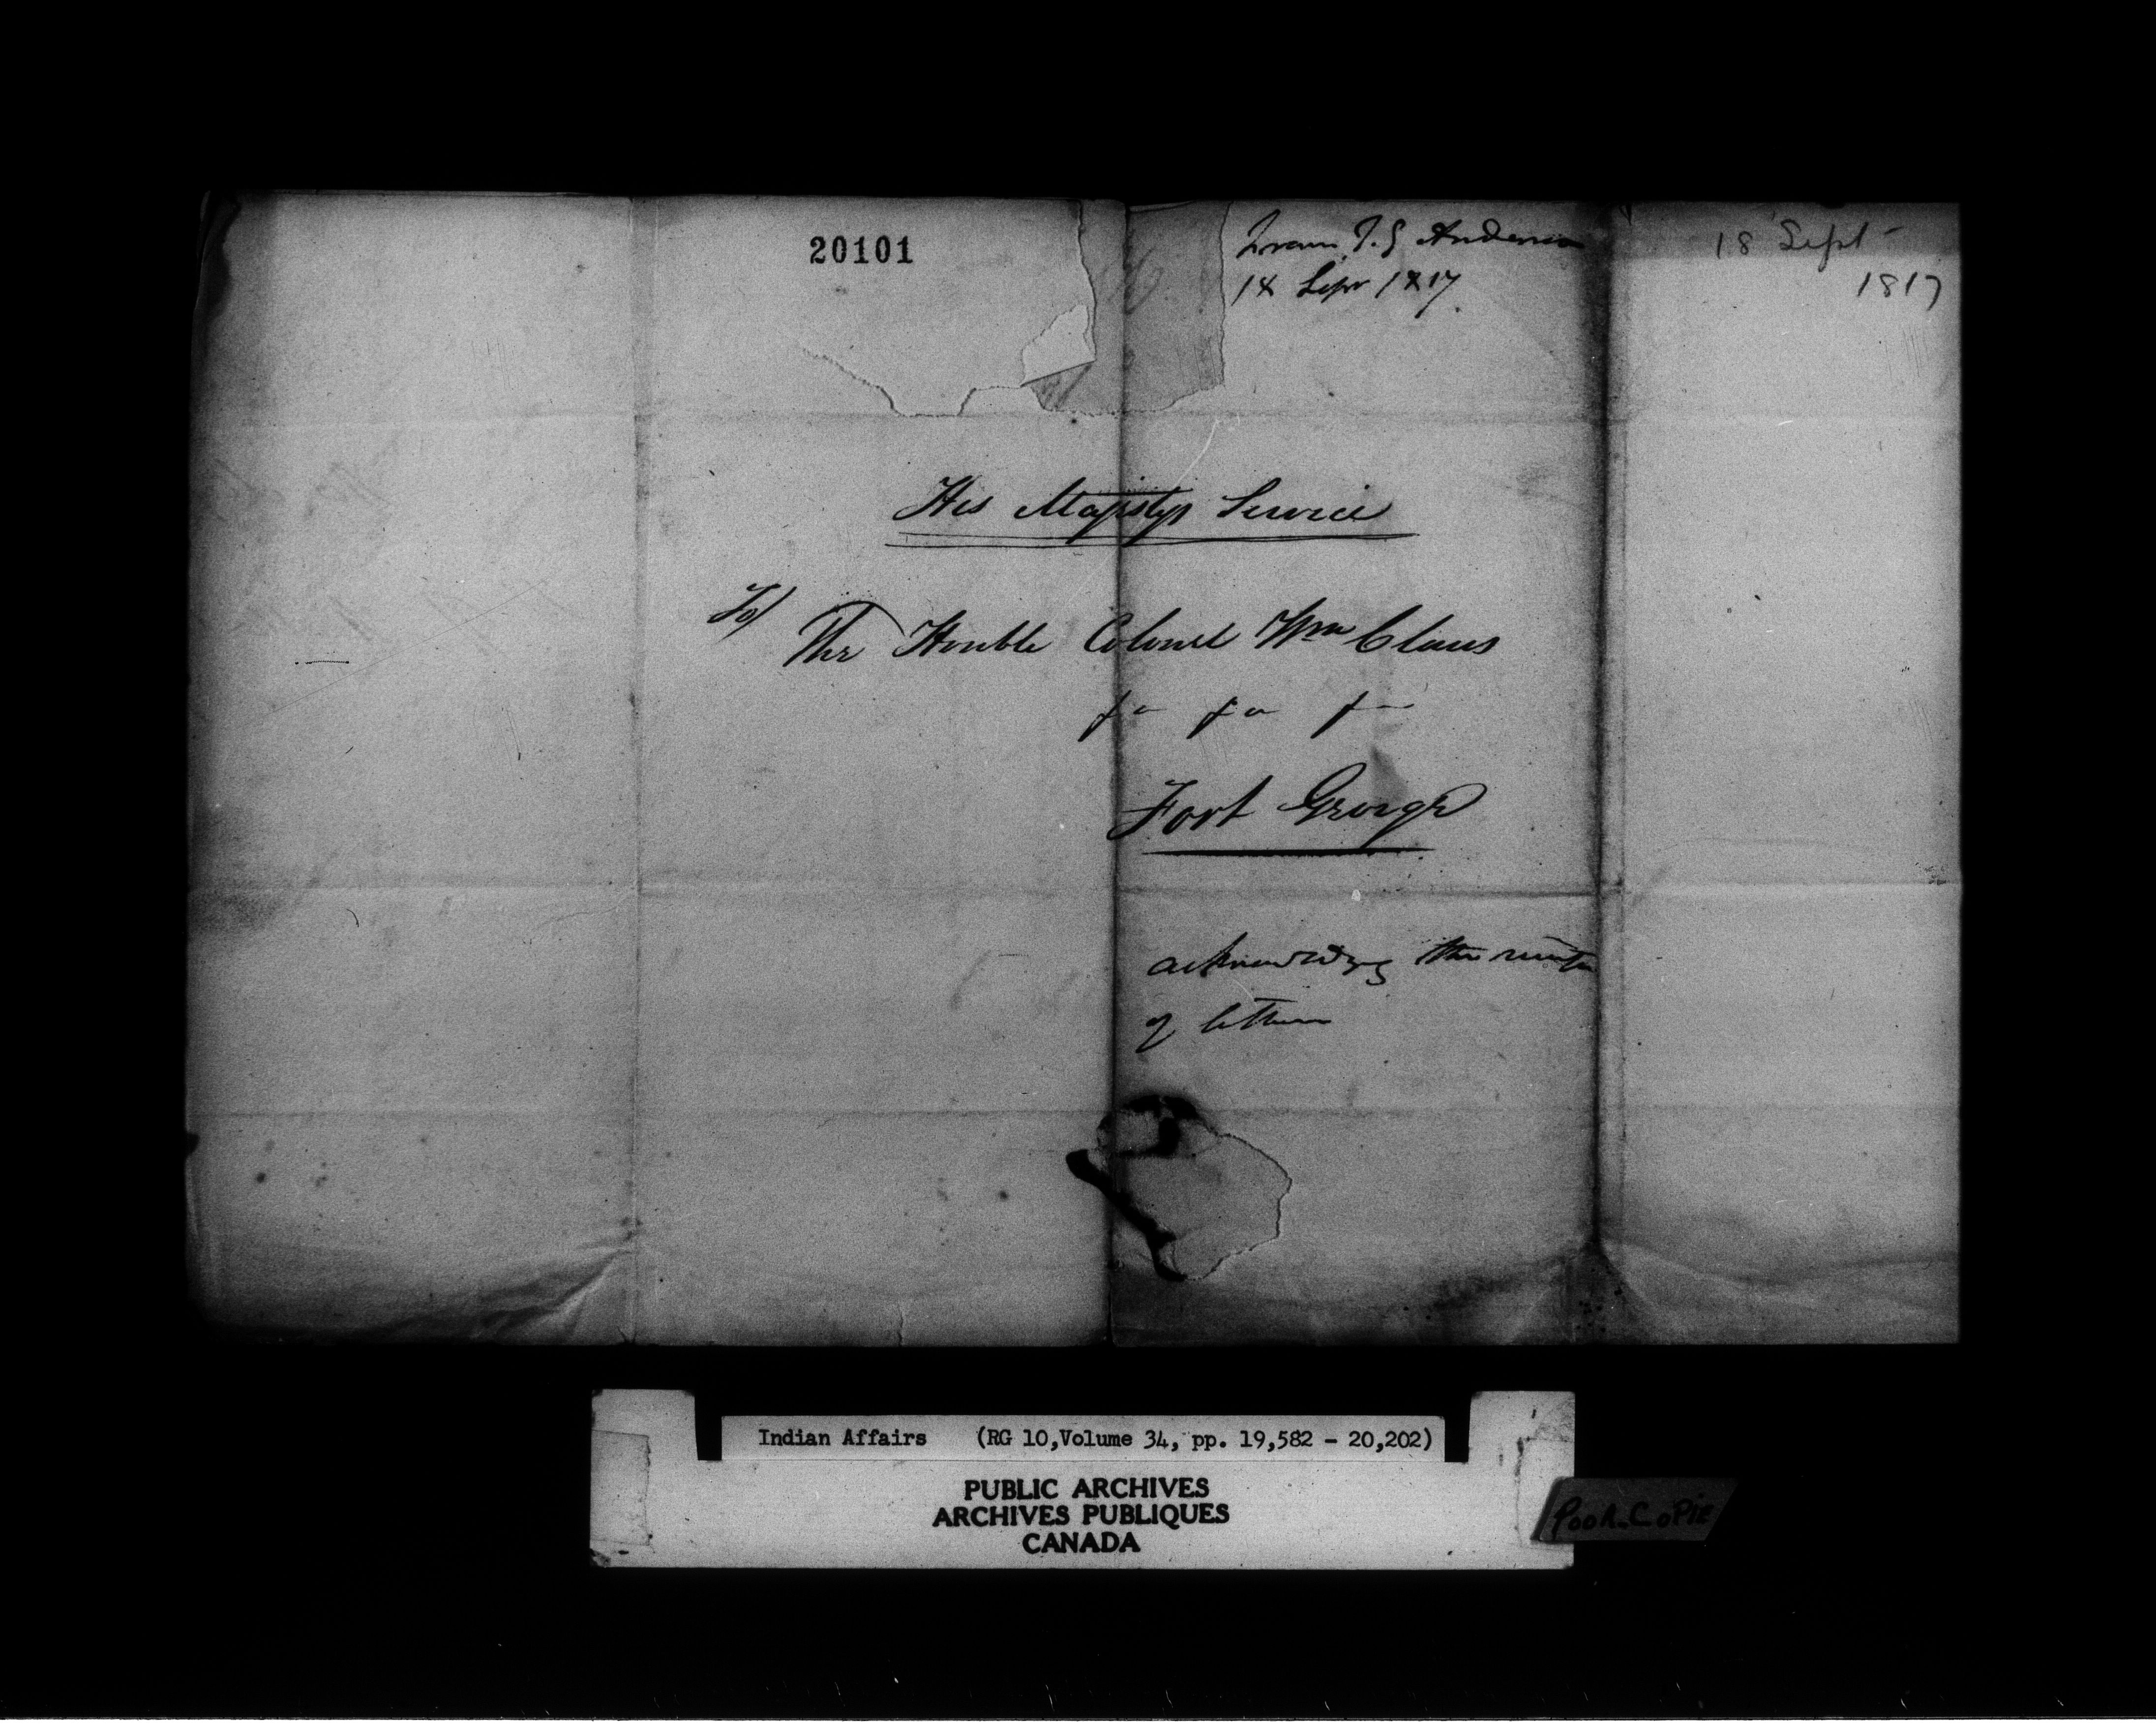 20101
From T. G. Anderson
18 Sepr 1817.
18 Sept
1817
His Majestys Service
To/
The Honble Colonel Wm Claus
&c &c &c
Fort George
acknowledging the receipt
of letters
Indian Affairs (RG 10,Volume 34, pp. 19,582 - 20,202)
PUBLIC ARCHIVES
ARCHIVES PUBLIQUES
CANADA
POOR COPIE